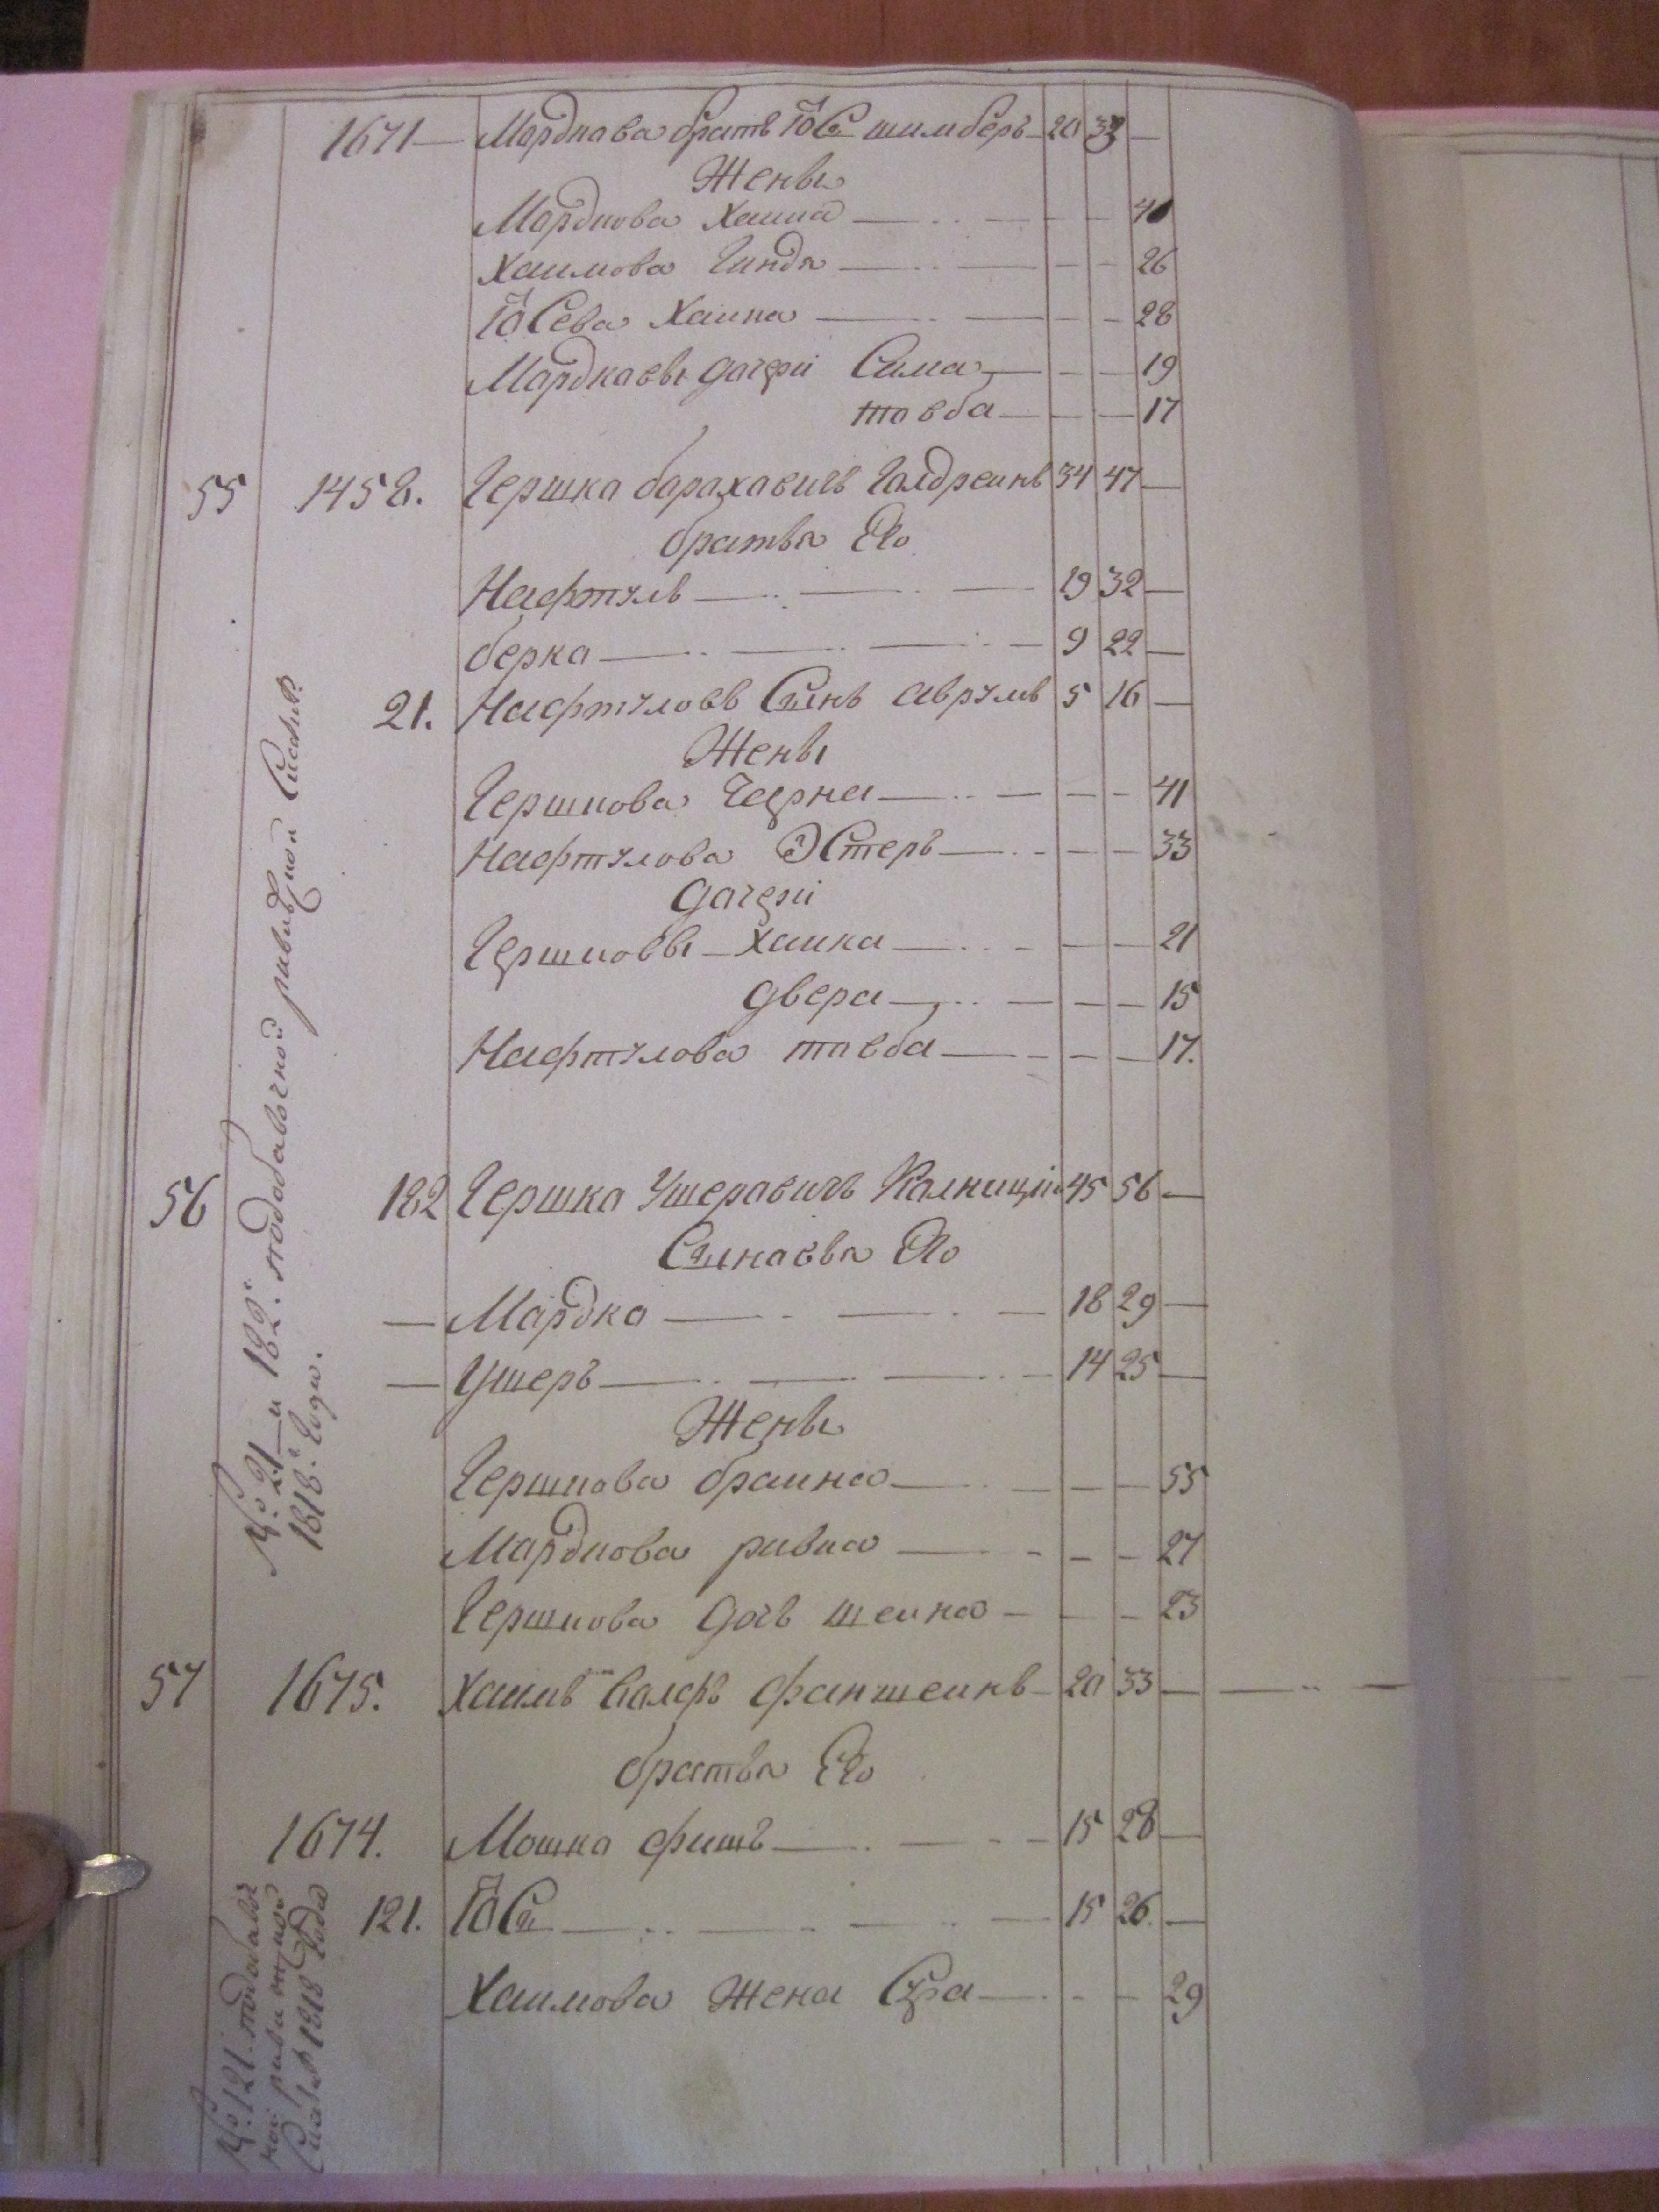 1671 — Мордкова братъ Іось шимберъ 20 33 —
Жены
Мордкова Хаина — 40
Хаимова Гиндя — 26
Іосева Хаика — 28
Мардкавы дочери Сима — 19
товба — 17
55 1458. Гершка барахавичъ Голдреинъ 34 47 —
братья Его
Нафтуль — 19 32 —
берка — 9 22 —
21. Нафтуловъ Сынъ аврумъ 5 16 —
Жены
Гершкова Черна — 41
Нафтулова Эстеръ — 33
дочери
Гершковы — Хаика — 21
двера — 15
Нафтулова товба — 17.
56 182 Гершка Ушеравичъ Колницкій 45 56 —
Сынавья Его
— Мардка — 18 29 —
— Ушеръ — 14 25 —
Жены
Гершкова браина — 55
Мардкова ривка — 27
Гершкова дочь шеина — 23
57 1675. Хаимъ Волфъ фанштеинъ 20 33 —
братья Его
1674. Мошка фишъ — 15 28 —
121. Іось — 15 26. —
Хаимова Жена Сура — 29
№ 21 и 182. подобавочной ревизкой Сказки
1818. года.
№ 121. подобавоч
ной
1818 года